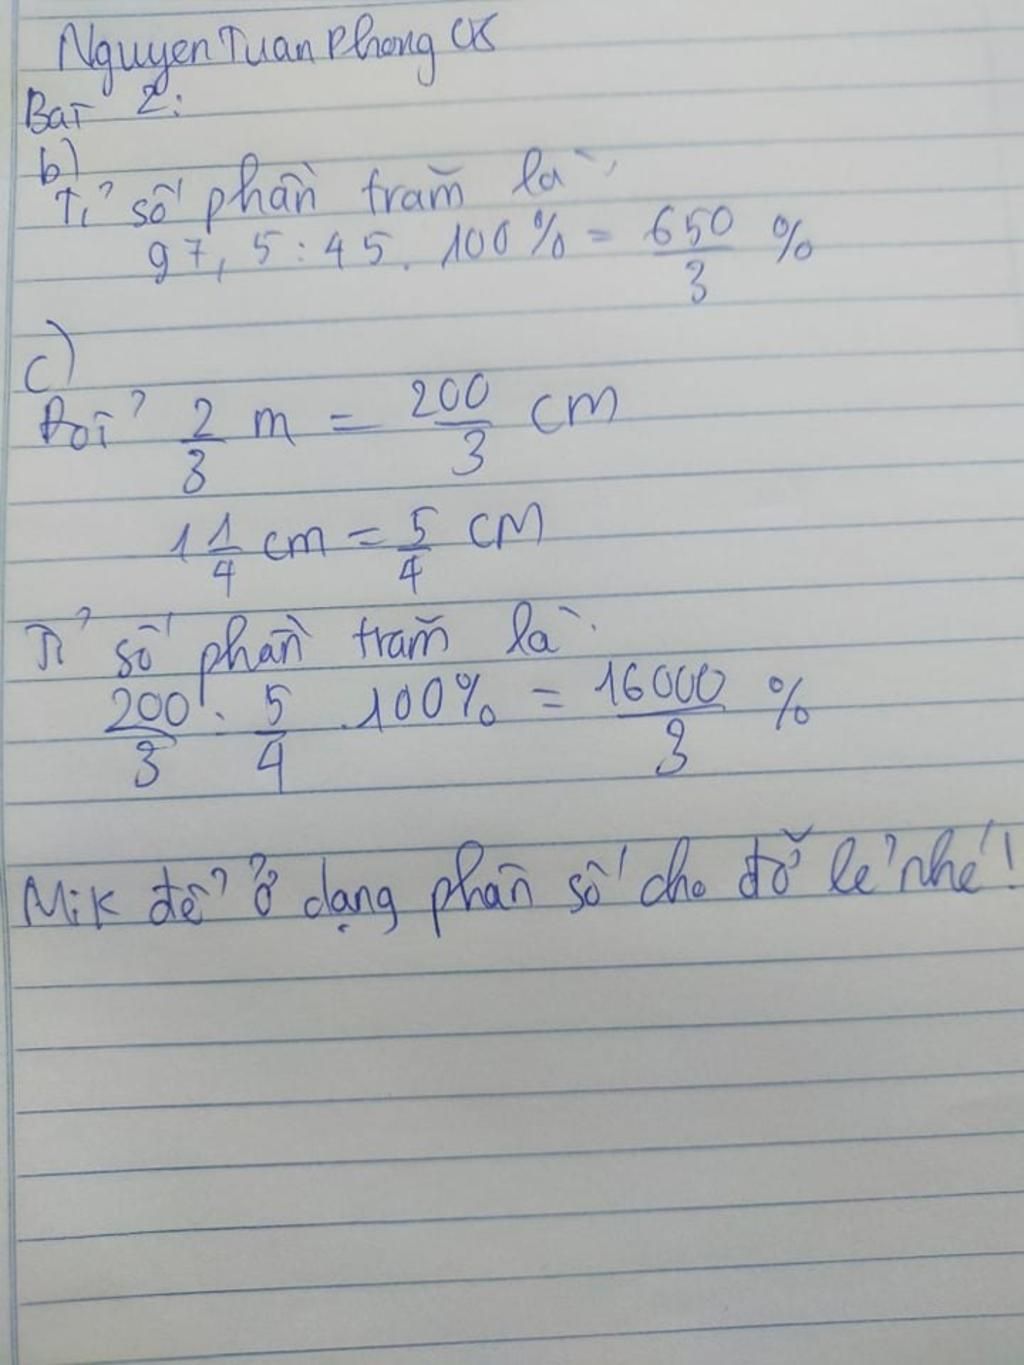 Nguyen Tuan Phong CK
Bài 2:
b)
Tỉ số phần trăm là:
97,5:45.100% = 650/3 %
c)
Đổi 2/3 m = 200/3 cm
1 1/4 cm = 5/4 cm
Tỉ số phần trăm là:
200/3 : 5/4 .100% = 16000/3 %
Mik để ở dạng phân số cho đỡ lẻ nhé!